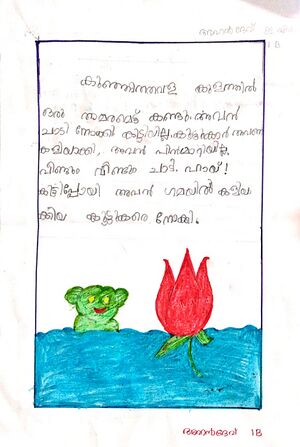 1 B
കുഞ്ഞിത്തവള കുളത്തിൽ
ഒരു താമരമൊട്ട് കണ്ടു. അവൻ
ചാടി നോക്കി കിട്ടിയില്ല. കൂട്ടുകാർ അവനെ
കളിയാക്കി, അവൻ പിൻമാറിയില്ല.
വീണ്ടും വീണ്ടും ചാടി. ഹായ്!
കിട്ടിപ്പോയി അവൻ ഗമയിൽ കളിയാ
ക്കിയ കൂട്ടുകാരെ നോക്കി.
1B